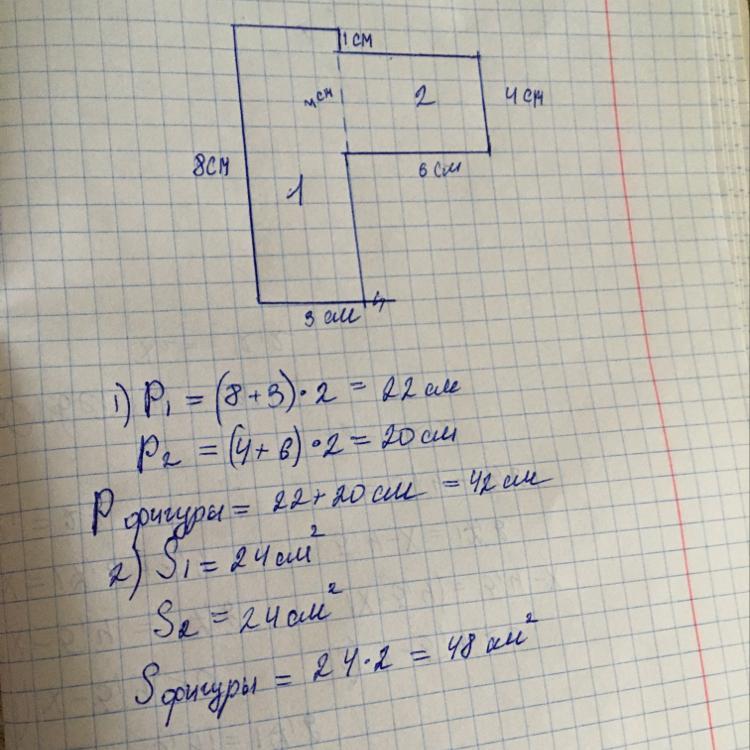 1 см
4 см
2
4 см
8 см
6 см
1
3 см
1) P₁ = (8+3)·2 = 22 см
P₂ = (4+6)·2 = 20 см
P фигуры = 22+20 см = 42 см
2) S₁ = 24 см²
S₂ = 24 см²
S фигуры = 24·2 = 48 см²